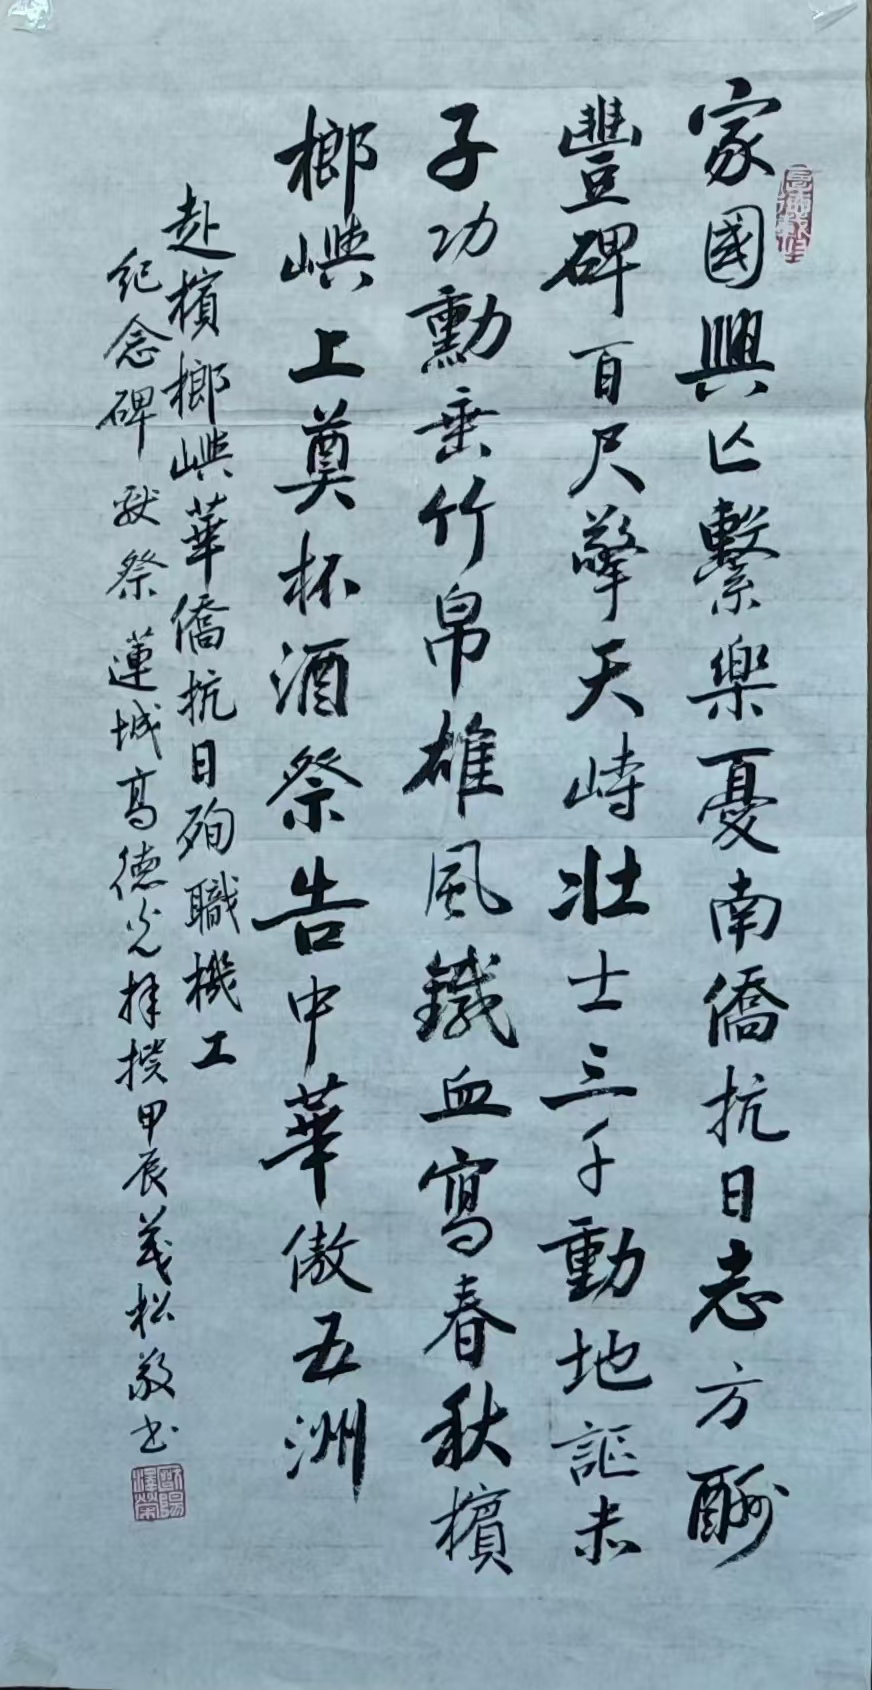 家國興亡繫樂憂南僑抗日志方酬
豐碑百尺擎天峙壯士三千動地謳赤
子功勳垂竹帛雄風鐵血寫春秋檳
榔嶼上奠杯酒祭告中華傲五洲
赴檳榔嶼華僑抗日殉職機工
紀念碑獻祭蓮城高德光拜撰甲辰義松敬書